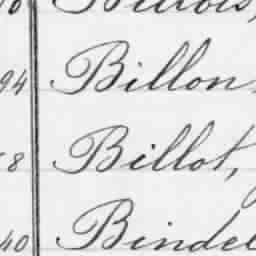 94 Billon
8 Billot,
40 Bindel